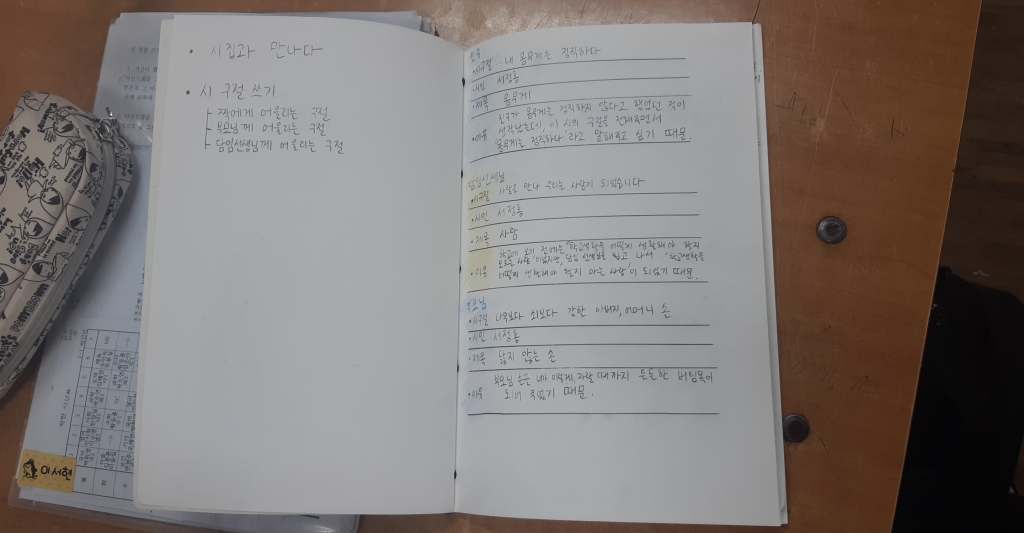 • 시집과 만나다
• 시 구절 쓰기
ㅏ 짝에게 어울리는 구절
ㅏ 부모님께 어울리는 구절
ㅏ 담임선생님께 어울리는 구절
친구
•시구절 : 내 몸무게는 정직하다
•시인 서정홍
•제목 몸무게
친구가 몸무게는 정직하지 않다고 했었던 적이
•이유 생각났는데, 이 시의 구절을 전해주면서
'몸무게는 정직하다'라고 말해주고 싶기 때문.
담임선생님
•시구절 사람을 만나 우리는 사람이 되었습니다
•시인 서정홍
•제목 사람
학교에 오기 전에는 '학교생활을 어떻게 생활해야 할지
모르는 사람'이었지만, 담임 선생님을 뵙고 나서 '학교생활을
•이유 어떻게 생활해야 할지 아는 사람'이 되었기 때문.
부모님
•시구절 나무보다 쇠보다 강한 아버지, 어머니 손
•시인 서정홍
•제목 닳지 않는 손
부모님 손은 내가 이렇게 자랄 때까지 든든한 버팀목이
•이유 되어 주셨기 때문.
이서현